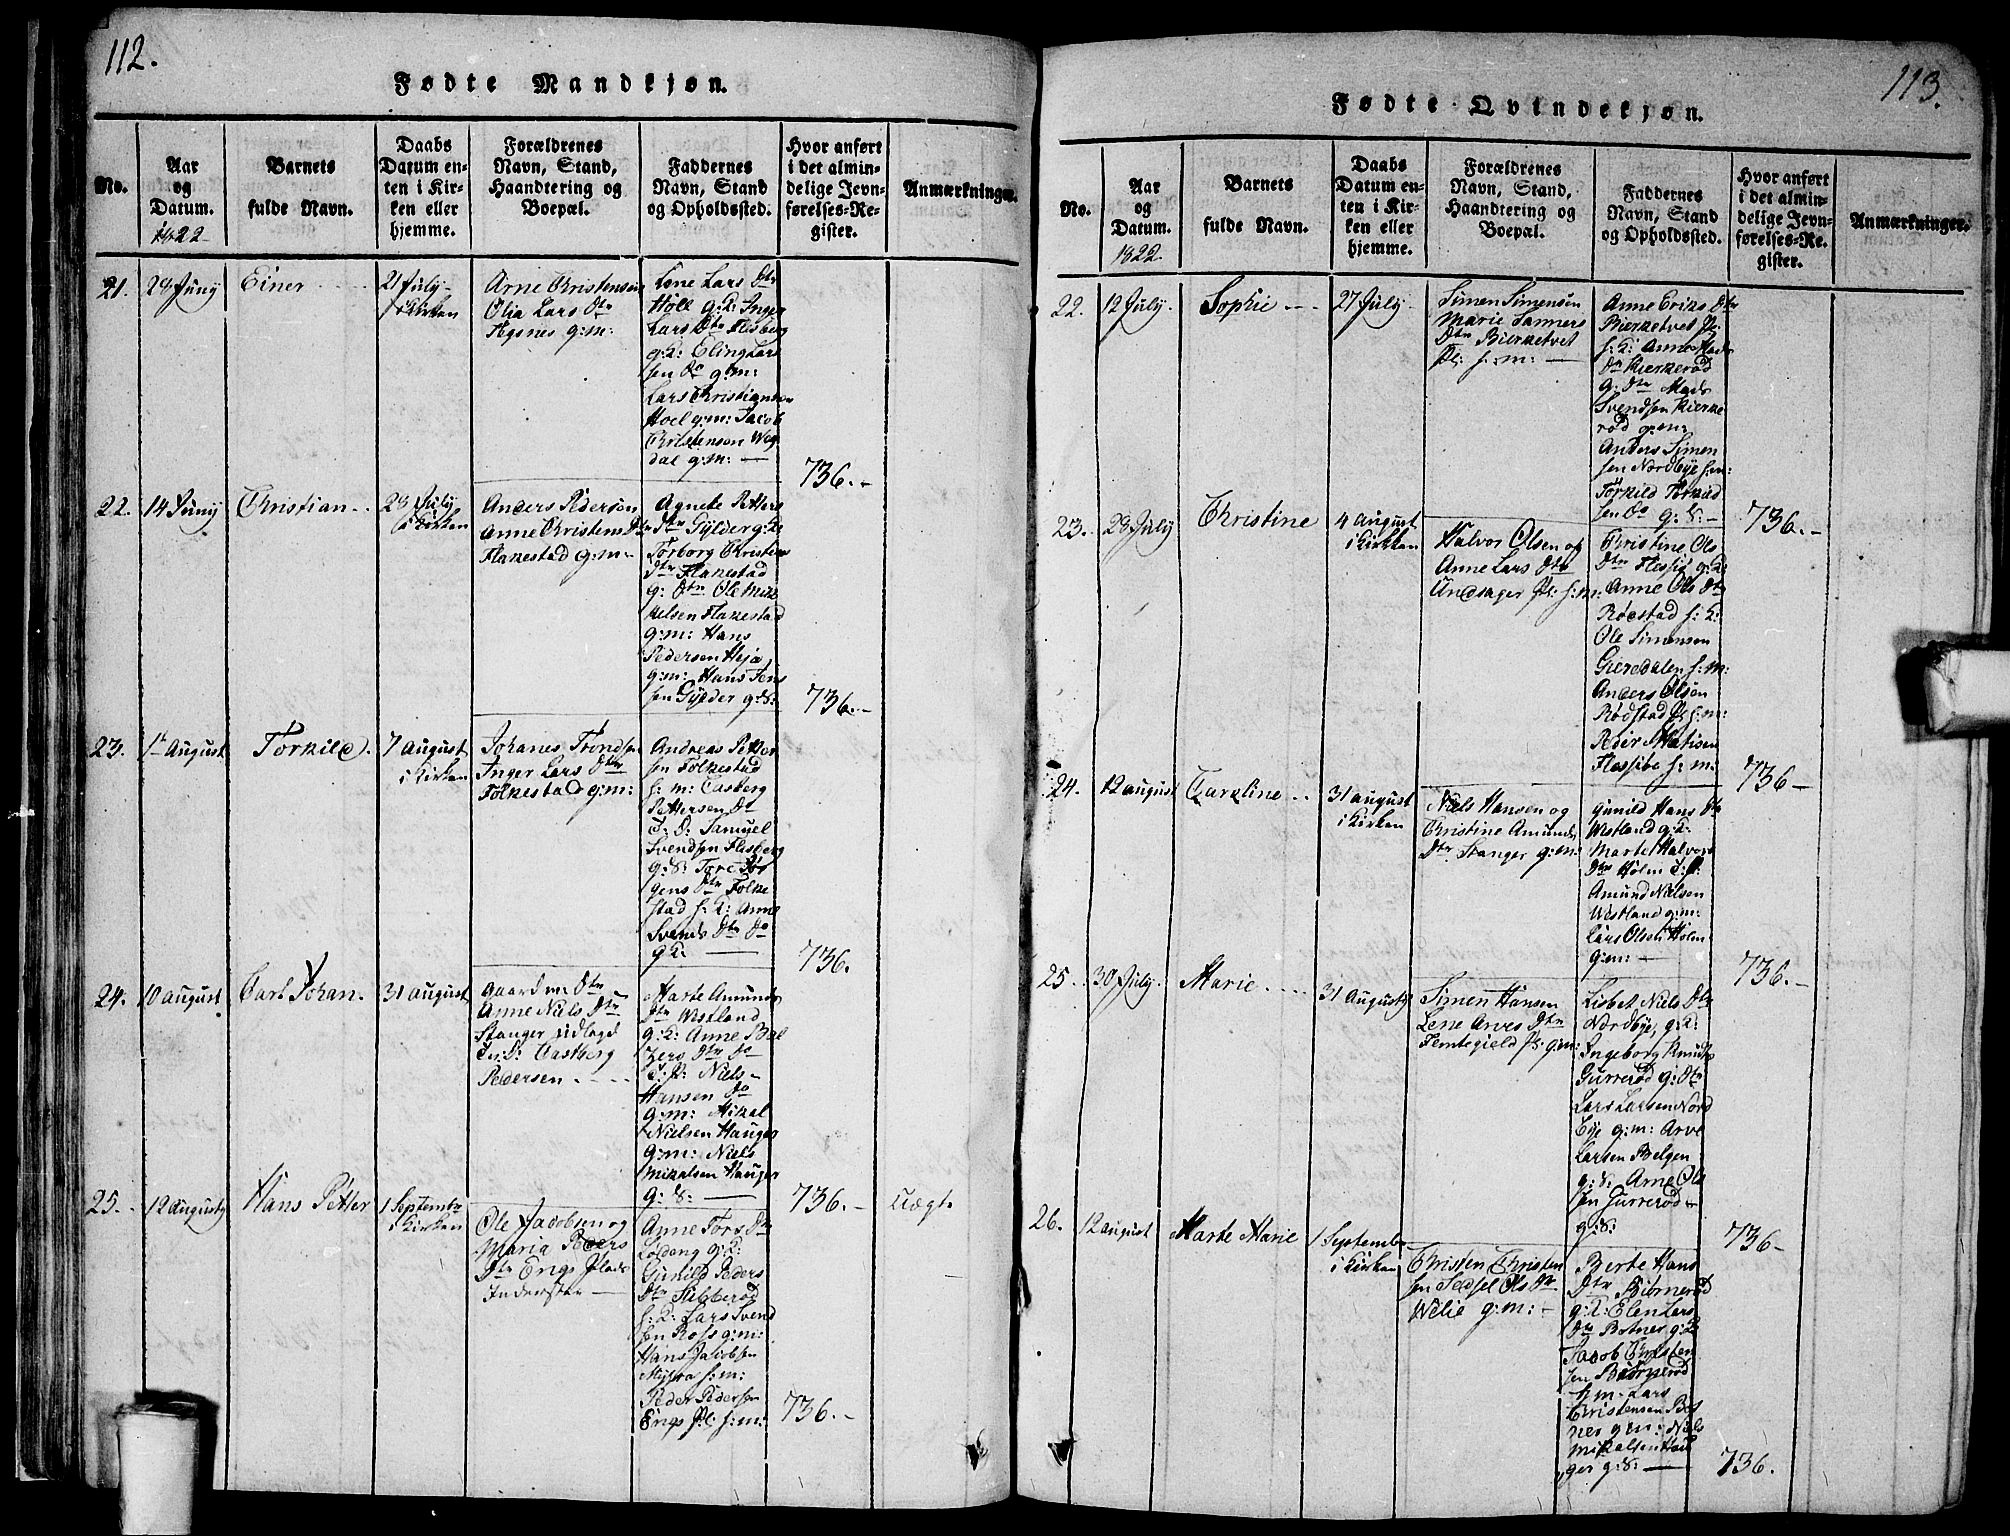 112.
Fødte Mandkjøn.
No.
Aar
og
Datum.
1822
Barnets
fulde Navn.
Daabs
Datum en-
ten i Kir-
ken eller
hjemme.
Forældrenes
Navn, Stand,
Haandtering og
Boepæl.
Faddernes
Navn, Stand
og Opholdssted.
Hvor anført
i det almin-
delige Jevn-
førelses-Re-
gister.
Anmærkninger.
21.
29 Juny
Einer
21 July
i Kirken
Arne Christensen
Olia Lars Dtr
g:m:
Lene Lars Dtr
Höll g:K: Inger
Lars Dtr Flesberg
g:K: Eling Lars
sen Do g:m:
Lars Christiansen
Hoel g:m: Jacob
Christensen Weg
dal g:m: —
736.–
22.
14 Juny
Christian
28 July
i Kirken
Anders Pedersen
Anne Christens Dtr
Flakestad g:m:
Agnete Petters
Dtr Gylder g:K:
Torborg Christian
Dtr Flakestad
g: Dtr Ole Mik
kelsen Flakestad
g:m: Hans
Pedersen Heja
g:m: Hans Jens
sen Gylder g:S:
736.–
23.
1te August
Torkild.
7 August
i Kirken
Johanes Trondsen
Inger Lars Dtr
Folkestad g:m:
Andreas Petter
sen Folkestad
f: m: Casberg
Pettersen Do
T: D: Samuel
Svendsen Flesberg
g:S: Tore Jör
gens Dtr Folke
stad f: K: Anne
Svends Dtr Do
g:K: —
736.
24.
10 august
Carl Johan.
31 august
Gaardm: Dtr
Anne Niels Dtr
Stanger udlagd
Castberg
Pedersen
Marte Amunds
Dtr Westland
g:K: Anne Bal
zers Dtr Do
T: P: Niels
Hansen Do
g:m: Mikal
Nielsen Hauger
g:m: Niels
Mikalsen Hauger
g: S: —
736.–
Uægt.
25.
12 august
Hans Petter
1 Septembr
i Kirken
Ole Jacobsen og
Maria Peders
Dtr Engs Plads
Inderster —
Anne Tors Dtr
Lödeng g:K:
Gunild Peders
Dtr Sibberöd
f: K: Lars Svend
sen Ross g:m:
Hans Jacobsen
f:m:
Peder Pedersen
Engs Pl: f:m:
736.–
113.
Fødte Qvindekjøn.
No.
Aar
og
Datum.
1822
Barnets
fulde Navn.
Daabs
Datum en-
ten i Kir-
ken eller
hjemme.
Forældrenes
Navn, Stand,
Haandtering og
Boepæl.
Faddernes
Navn, Stand
og Opholdssted.
Hvor anført
i det almin-
delige Jevn-
førelses-Re-
gister.
Anmærkninger.
22.
12 July.
Sophie
27 July
Simen Simensen
Marie Sanners
Dtr Bierketvet
Pl: f: m: —
Anne Eriks Dtr
Bierketvet Pl:
f: K: Anne Mads
Dtr Kierkeröd
g: Dtr Mads
Svendsen Kierke
röd g:m:
Anders Simen
sen Nordbye f:m:
Torkild Torkild
sen Do g:S:–
736.–
23.
28 July
Christine
4 August
i Kirken
Halvor Olsen og
Anne Lars Dtr
Undsager Pl: f:m:
Christine Ols
Dtr g:K:
Anne Ols Dtr
Röestad f: K:
Ole Simensen
Gieredalen f:m:
Anders Olsen
Rödstad Pl f:m:
Peder Matisen
f: m:
736–
24.
12 august
Caroline
31 august
i Kirken
Niels Hansen og
Christine Amunds
Dtr Stanger g:m:
Gunild Hans Dtr
Westland g:K:
Marte Halvors
Dtr Holm
Amund Nielsen
Westland g:m:
Lars Olsen Holm
g:m: —
736.–
25.
30 July.
Marie
31 August
Simen Hansen
Lene Arves Dtr
Femtegield Pl: g:m:
Lisbet Niels Dtr
Nordbye g:K:
Ingeborg Knuds
Gurreröd g: Dtr
Lars Larsen Nord
bye g:m: Arve
Larsen Belgen
g:S: Arne Ols
sen Gurreröd
g:S:
736–
26.
12 august
Marte Marie
1 Septembr
i Kirken
Christen Christen
sen Sedsel Ols Dtr
Welie g:m: –
Berte Hans
Dtr Biörneröd
g:K: Elen Lars
Dtr Botner g:K
Jacob Christen
sen Biörneröd
f:m: Lars
Christensen Bot
ner g:m: Niels
Mikalsen Hau
ger g:S: —
736.